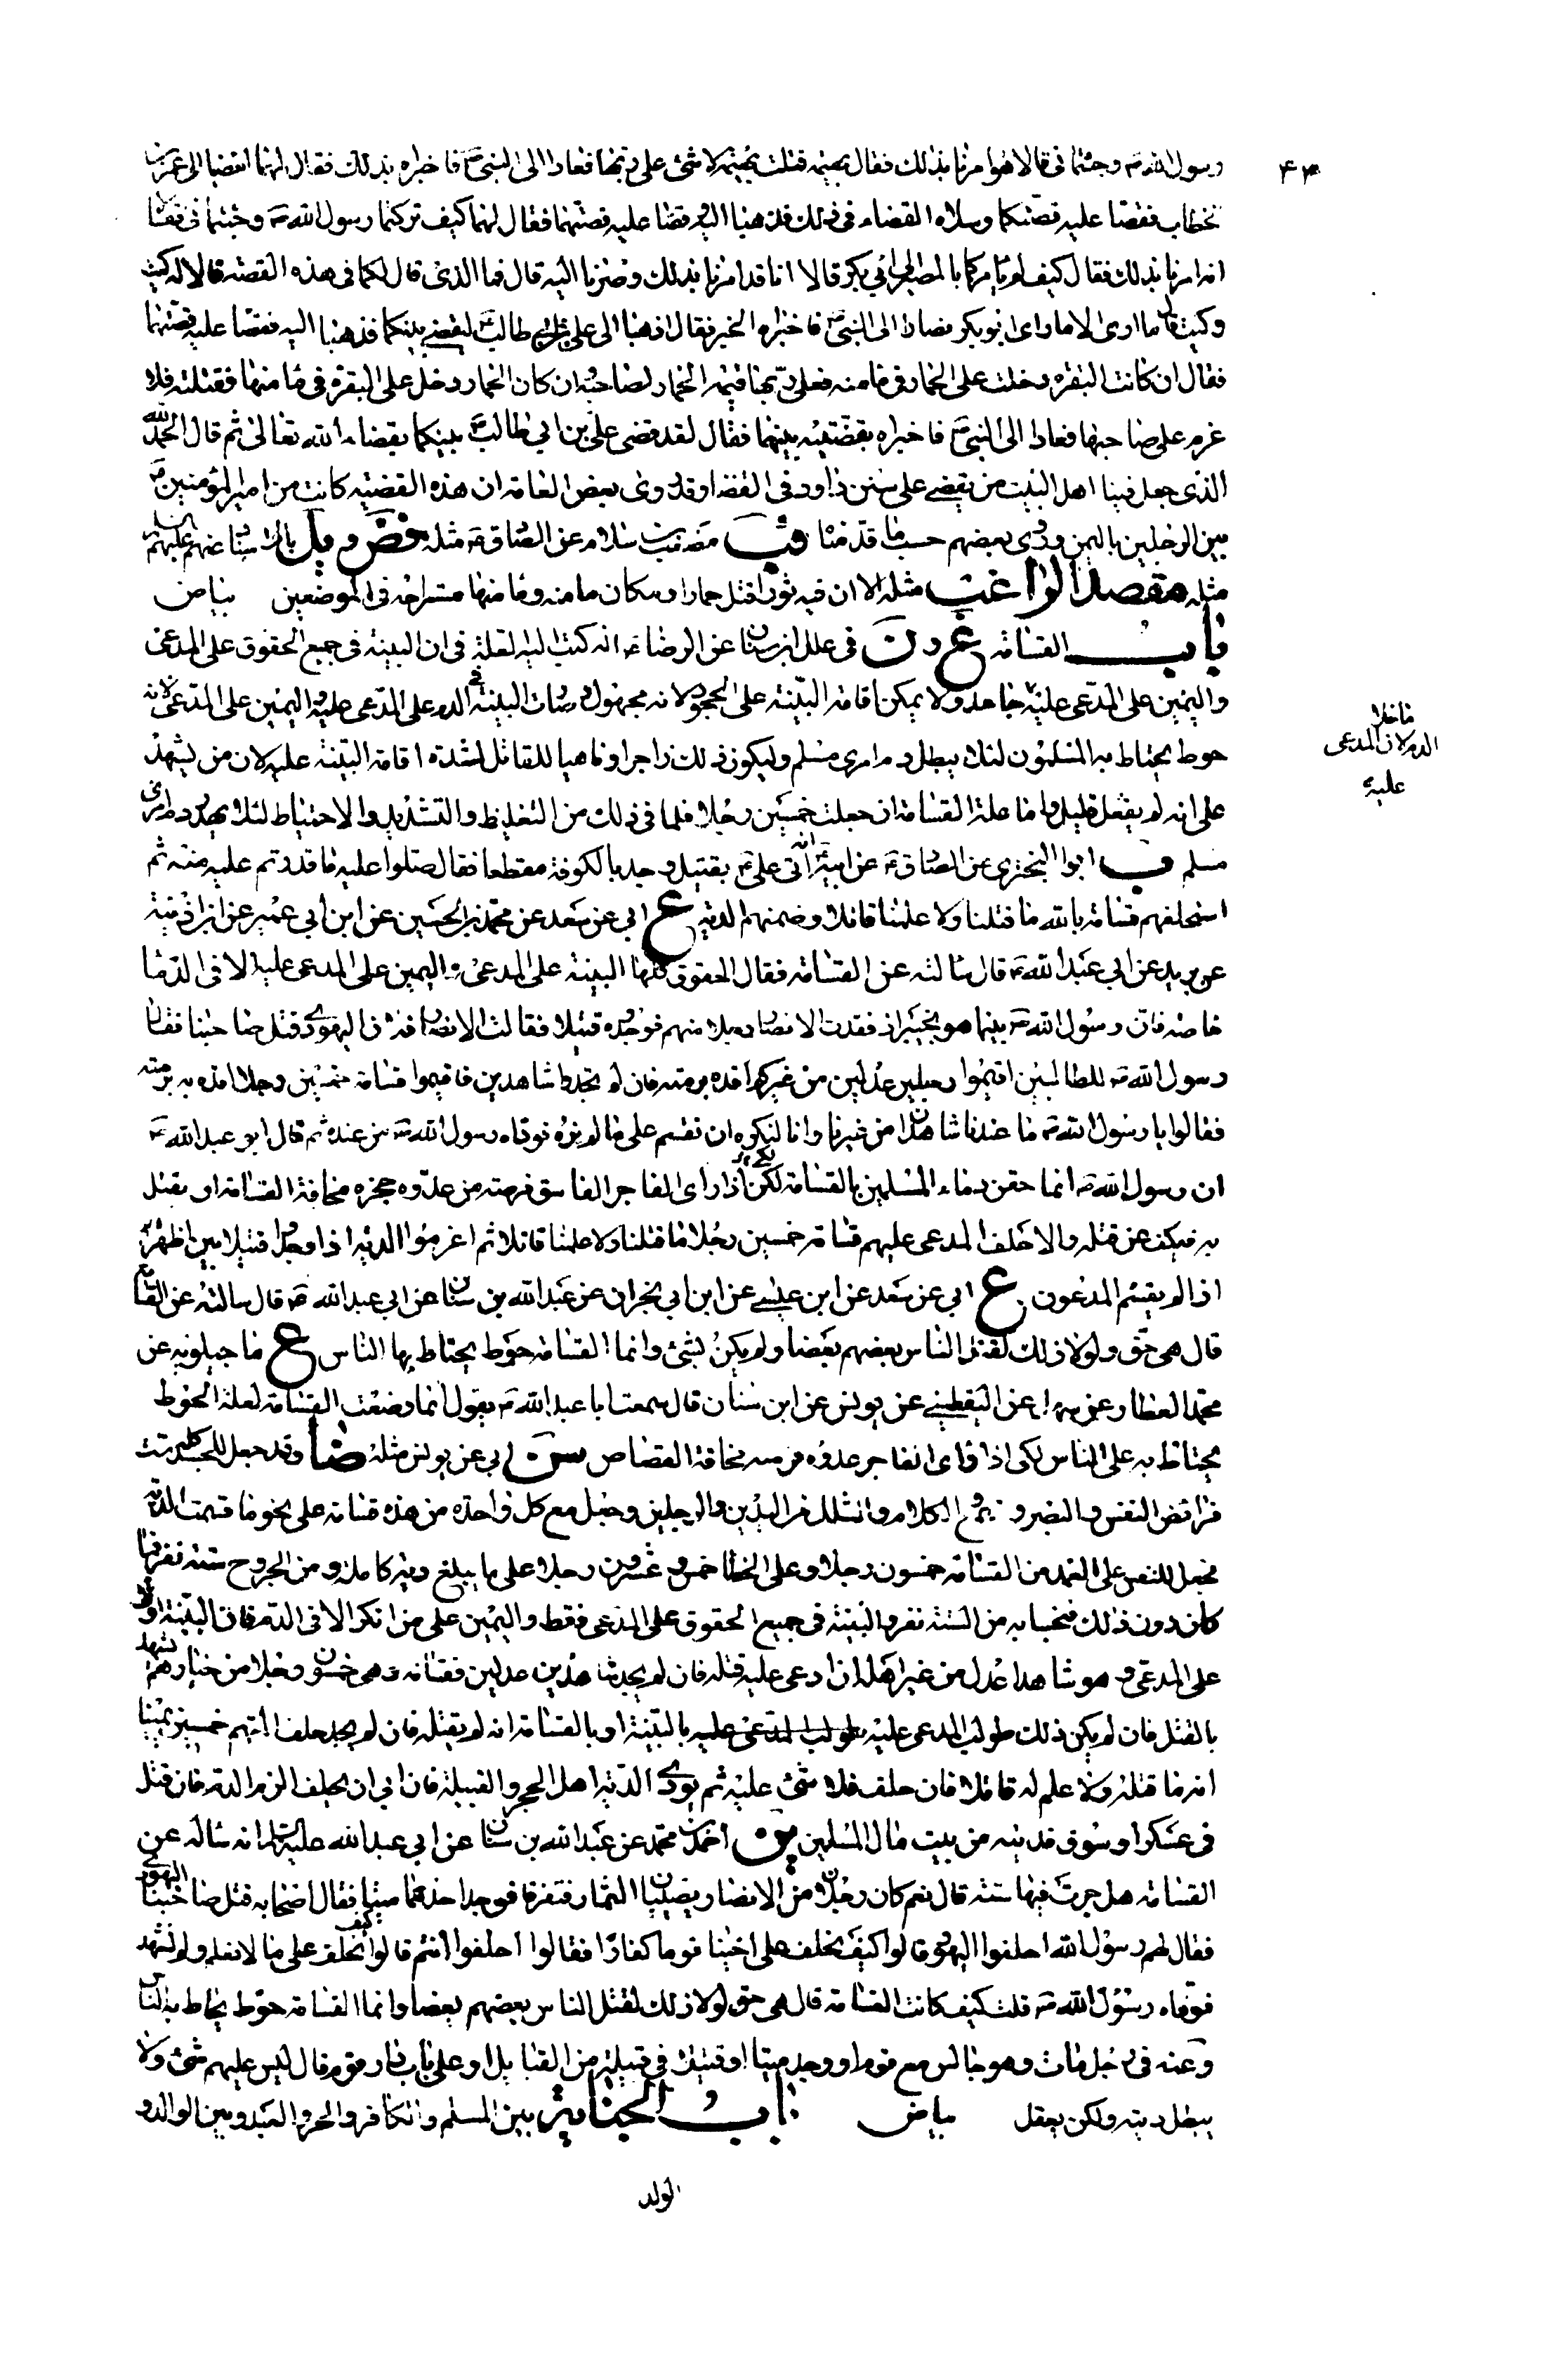 ۴۳
رسول الله ص وجئتما فی قالا هو امرنا بذلك فقال بهیمه قتلت بهیمه لا شئ علی ربها فعادا الی النبی ص فاخبراه بذلك فقال لهما امضیا الی عمر بن
خطاب فقصا علیه قصتکما وسلاه القضاء فی ذلك فذهبا الیه وقصا علیه قصتهما فقال لهما کیف ترکتما رسول الله ص وجئتمانی فقالا
انه امرنا بذلك فقال کیف لم یامرکما بالمصیر الی ابی بکر قالا انا قد امرنا بذلك وصرنا الیه قال فما الذی قال لکما فی هذه القصه قالا له کیت
وکیت قال ما اری الا ما رای ابو بکر فصارا الی النبی ص فاخبراه الخبر فقال اذهبا الی علی بن ابی طالب ع لیقضی بینکما فذهبا الیه فقصا علیه قصتهما
فقال ان کانت البقره دخلت علی الحمار فی مامنه فعلی ربها قیمه الحمار لصاحبه وان کان الحمار دخل علی البقره فی مامنها فقتلته فلا
غرم علی صاحبها فعادا الی النبی ص فاخبراه بقضیته بینهما فقال لقد قضی علی بن ابی طالب ع بینکما بقضاء الله تعالی ثم قال الحمد لله
الذی جعل فینا اهل البیت من یقضی علی سنن داود فی القضا وقد روی بعض العامه ان هذه القضیه کانت من امیر المؤمنین ع
بین الرجلین بالیمن وروی بعضهم حسب ما قدمنا قب مصعب بن سلام عن الصادق ع مثله
مثله مقصد الراغب مثله الا ان فیه ثورا قتل حمارا ومکان مامنه ومامنها مستراحه فی الموضعین بیاض
باب القسامه ع ون فی علل ابن سنان عن الرضا ع انه کتب الیه لعله فی ان البینه فی جمیع الحقوق علی المدعی
والیمین علی المدعی علیه ما خلا الدم لان المدعی علیه جاحد ولا یمکن اقامه البینه علی الجحود لانه مجهول وصارت البینه فی الدم علی المدعی علیه والیمین علی المدعی لانه
حوط یحتاط به المسلمون لئلا یبطل دم امری مسلم ولیکون ذلك زاجرا وناهیا للقاتل لشده اقامه البینه علیه لان من یشهد
علی انه لم یفعل قلیل واما عله القسامه ان جعلت خمسین رجلا فلما فی ذلك من التغلیظ والتشدید والاحتیاط لئلا یهدر دم امری
مسلم ب ابو البختری عن الصادق ع عن ابیه ع انه اتی علی ع بقتیل وجد بالکوفه مقطعا فقال صلوا علیه ما قدرتم علیه منه ثم
استحلفهم قسامه بالله ما قتلنا ولا علمنا قاتلا وضمنهم الدیه ع ابی عن سعد عن محمد بن الحسین عن ابن ابی عمیر عن ابن اذینه
عن برید عن ابی عبد الله ع قال سالته عن القسامه فقال الحقوق کلها البینه علی المدعی والیمین علی المدعی علیه الا فی الدماء
خاصه فان رسول الله ص بینما هو بخیبر اذ فقدت الانصار رجلا منهم فوجدوه قتیلا فقالت الانصار ان فلان الیهودی قتل صاحبنا فقال
رسول الله ص للطالبین اقیموا رجلین عدلین من غیرکم اقده برمته فان لم تجدوا شاهدین فاقیموا قسامه خمسین رجلا اقده به برمته
فقالوا یا رسول الله ص ما عندنا شاهدان من غیرنا وانا لنکره ان نقسم علی ما لم نره فوداه رسول الله ص من عنده ثم قال ابو عبد الله ع
ان رسول الله ص انما حقن دماء المسلمین بالقسامه لکی اذا رای الفاجر الفاسق فرصته من عدوه حجزه مخافه القسامه ان یقتل
به فیکف عن قتله والا حلف المدعی علیهم قسامه خمسین رجلا ما قتلنا ولا علمنا قاتلا ثم اغرموا الدیه اذا وجدوا قتیلا بین اظهرهم
اذا لم یقسم المدعون ع ابی عن سعد عن ابن عیسی عن ابن ابی نجران عن عبد الله بن سنان عن ابی عبد الله ع قال سالته عن القسامه
قال هی حق ولولا ذلك لقتل الناس بعضهم بعضا ولم یکن لشئ وانما القسامه حوط یحتاط بها الناس ع ماجیلویه عن
محمد العطار عن سهل عن الیقطینی عن یونس عن ابن سنان قال سمعت ابا عبد الله ع یقول انما وضعت القسامه لعله الحوط
یحتاط به علی الناس لکی اذا رای الفاجر عدوه فر منه مخافه القصاص سن ابی عن یونس مثله ضا وقد جعل للجسد کله ست
فرائض النفس والبصر و السمع والکلام والشلل من الیدین والرجلین وجعل مع کل واحده من هذه قسامه علی نحو ما قسمت الدیه
فجعل للنفس علی العمد من القسامه خمسون رجلا وعلی الخطا خمس وعشرون رجلا علی ما یبلغ دیه کامله ومن الجروح سته نفر فما
کان دون ذلك فبحسابه من السته نفر والبینه فی جمیع الحقوق علی المدعی فقط والیمین علی من انکر الا فی الدم فان البینه اولا
علی المدعی وهو شاهدا عدل من غیر اهله ان ادعی علیه قتله فان لم یجد شاهدین عدلین فقسامه وهی خمسون رجلا من خیارهم یشهدون
بالقتل فان لم یکن ذلك طولب المدعی علیه بالبینه او بالقسامه انه لم یقتله فان لم یجد حلف المتهم خمسین یمینا
انه ما قتله ولا علم له قاتلا فان حلف فلا شئ علیه ثم یودی الدیه اهل الحجر والقبیله فان ابی ان یحلف الزم الدم فان قتل
فی عسکر او سوق فدیته من بیت مال المسلمین ین احمد بن محمد عن عبد الله بن سنان عن ابی عبد الله علیه السلام انه ساله عن
القسامه هل جرت فیها سنه قال نعم کان رجلان من الانصار یصیبان الثمار فتفرقا فوجد احدهما میتا فقال اصحابه قتل صاحبنا الیهود
فقال لهم رسول الله احلفوا الیهود قالوا کیف نحلف علی اخینا قوما کفارا فقالوا احلفوا انتم قالوا کیف نحلف علی ما لا نعلم ولم نشهد
فوداه رسول الله ص قلت کیف کانت القسامه قال هی حق لولا ذلك لقتل الناس بعضهم بعضا وانما القسامه حوط یحاط به الناس
وعنه فی رجل مات وهو جالس مع قوم او وجد میتا او قتیلا فی قبیله من القبایل او علی باب دار قوم قال لیس علیهم شئ ولا
یبطل دیته ولکن یعقل بیاض باب الجنایه بین المسلم والکافر والحر والعبد وبین الوالد و
الولد
ما خلا
الدم لان المدعی
علیه